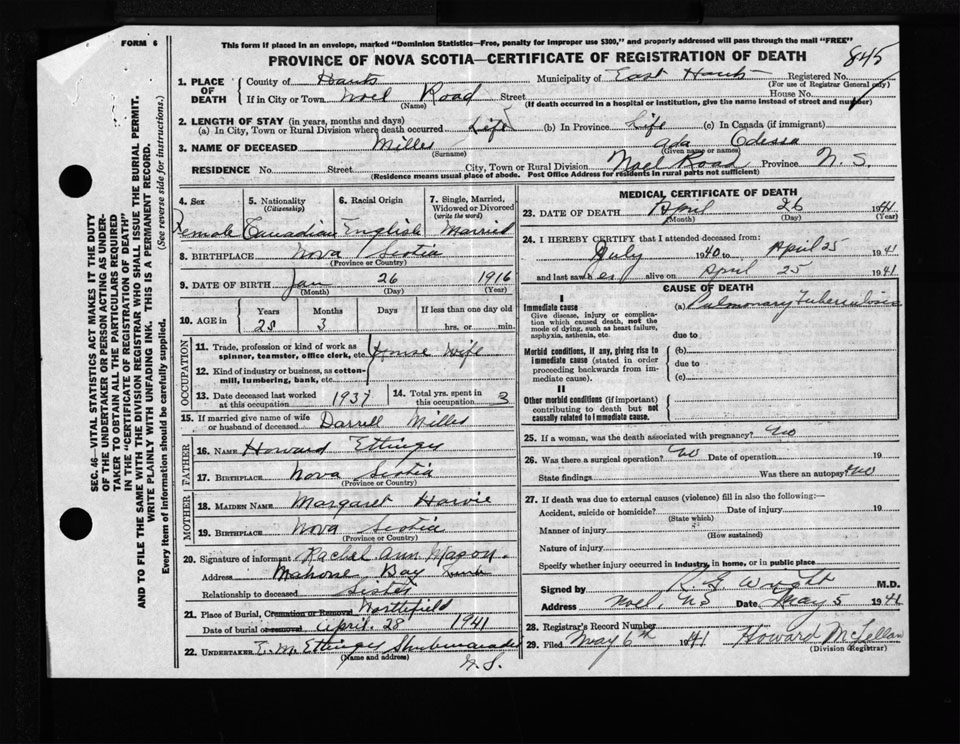 FORM 6
This form if placed in an envelope, marked "Dominion Statistics—Free, penalty for improper use $300," and properly addressed will pass through the mail "FREE"
PROVINCE OF NOVA SCOTIA—CERTIFICATE OF REGISTRATION OF DEATH 845
1. PLACE OF DEATH County of Hants Municipality of East Hants Registered No.
(For use of Registrar General only)
If in City or Town Noel Road Street House No.
(Name) (If death occurred in a hospital or institution, give the name instead of street and number)
2. LENGTH OF STAY (in years, months and days)
(a) In City, Town or Rural Division where death occurred Life (b) In Province Life (c) In Canada (if immigrant)
3. NAME OF DECEASED Milles Ada Odessa
(Surname) (Given name or names)
RESIDENCE No. Street City, Town or Rural Division Noel Road Province N. S.
(Residence means usual place of abode. Post Office Address for residents in rural parts not sufficient)
4. Sex Female
5. Nationality (Citizenship) Canadian
6. Racial Origin English
7. Single, Married, Widowed or Divorced (write the word) Married
8. BIRTHPLACE Nova Scotia
(Province or Country)
9. DATE OF BIRTH Jan 26 1916
(Month) (Day) (Year)
10. AGE in Years Months Days If less than one day old
25 3 hrs. or min.
OCCUPATION
11. Trade, profession or kind of work as spinner, teamster, office clerk, etc. House Wife
12. Kind of industry or business, as cotton-mill, lumbering, bank, etc.
13. Date deceased last worked at this occupation 1937
14. Total yrs. spent in this occupation 3
15. If married give name of wife or husband of deceased Darrell Milles
FATHER
16. NAME Howard Ettinger
17. BIRTHPLACE Nova Scotia
(Province or Country)
MOTHER
18. MAIDEN NAME Margaret Harvie
19. BIRTHPLACE Nova Scotia
(Province or Country)
20. Signature of informant Rachel Ann Mason.
Address Mahone Bay
Relationship to deceased Sister
21. Place of Burial, Cremation or Removal Northfield
Date of burial or removal April. 28 1941
22. UNDERTAKER E. M. Ettinger Shubenacadie
(Name and address) N. S.
MEDICAL CERTIFICATE OF DEATH
23. DATE OF DEATH April 26 1941
(Month) (Day) (Year)
24. I HEREBY CERTIFY that I attended deceased from:
July 1940 to April 25 1941
and last saw her alive on April 25 1941
CAUSE OF DEATH
I
Immediate cause (a) Pulmonary Tuberculosis
Give disease, injury or complication which caused death, not the mode of dying, such as heart failure, asphyxia, asthenia, etc. due to
Morbid conditions, if any, giving rise to immediate cause (stated in order proceeding backwards from immediate cause). (b)
due to
(c)
II
Other morbid conditions (if important) contributing to death but not causally related to immediate cause.
25. If a woman, was the death associated with pregnancy? No
26. Was there a surgical operation? No Date of operation 19
State findings Was there an autopsy? No
27. If death was due to external causes (violence) fill in also the following:—
Accident, suicide or homicide? Date of injury 19
(State which)
Manner of injury
(How sustained)
Nature of injury
Specify whether injury occurred in industry, in home, or in public place
Signed by Wright M.D.
Address Noel, NS Date May 5 1941
28. Registrar's Record Number
29. Filed May 6th 1941 Howard McLellan
(Division Registrar)
SEC. 46—VITAL STATISTICS ACT MAKES IT THE DUTY
OF THE UNDERTAKER OR PERSON ACTING AS UNDER-
TAKER TO OBTAIN ALL THE PARTICULARS REQUIRED
IN THE "CERTIFICATE OF REGISTRATION OF DEATH"
AND TO FILE THE SAME WITH THE DIVISION REGISTRAR WHO SHALL ISSUE THE BURIAL PERMIT.
WRITE PLAINLY WITH UNFADING INK. THIS IS A PERMANENT RECORD.
Every item of information should be carefully supplied. (See reverse side for instructions.)